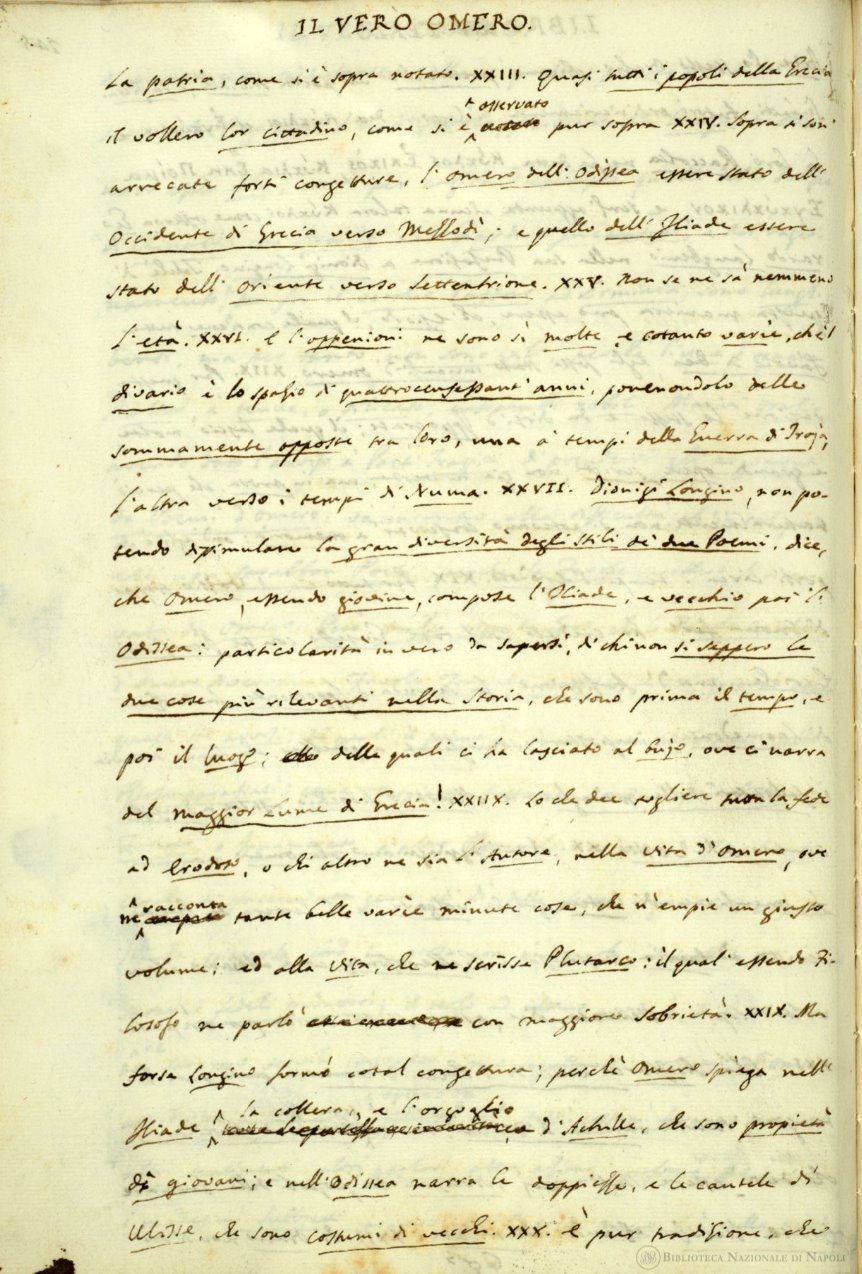 IL VERO OMERO.
la patria, come si è sopra notato. XXIII. Quasi tutti i popoli della Grecia
il vollero lor cittadino, come si è osservato pur sopra XXIV. Sopra si son'
arrecate forti congetture, l'Omero dell'Odissea essere stato dell'
Occidente di Grecia verso Mezzodì; e quello dell'Iliade essere
stato dell'Oriente verso Settentrione. XXV. Non se ne sà nemmeno
l'età. XXVI. E l'oppenioni ne sono sì molte, e cotanto varie, che 'l
divario è lo spazio di quattrocensessant'anni, ponendolo dalle
sommamente opposte tra loro, una a' tempi della Guerra di Troja,
l'altra verso i tempi di Numa. XXVII. Dionigi Longino, non po-
tendo dissimulare la gran diversità degli stili de' due Poemi, dice,
che Omero, essendo giovine, compose l'Iliade, e vecchio poi l'
Odissea: particolarità in vero da sapersi, di chi non si seppero le
due cose più rilevanti nella Storia, che sono prima il tempo, e
poi il luogo; delle quali ci ha lasciato al bujo, ove ci narra
del maggior Lume di Grecia! XXIIX. Lo che dee togliere tutta la fede
ad Erodoto, o chi altro ne sia l'Autore, nella Vita d'Omero, ove
ne racconta tante belle varie minute cose, che n'empie un giusto
volume; ed alla Vita, che ne scrisse Plutarco; il qual' essendo Fi-
losofo ne parlò con maggiore sobrietà. XXIX. Ma
forse Longino formò cotal congettura; perchè Omero spiega nell'
Iliade la collera, e l'orgoglio d'Achille, che sono propietà
di giovani; e nell'Odissea narra le doppiezze, e le cautele di
Ulisse, che sono costumi di vecchi. XXX. è pur tradizione, che
BIBLIOTECA NAZIONALE DI NAPOLI